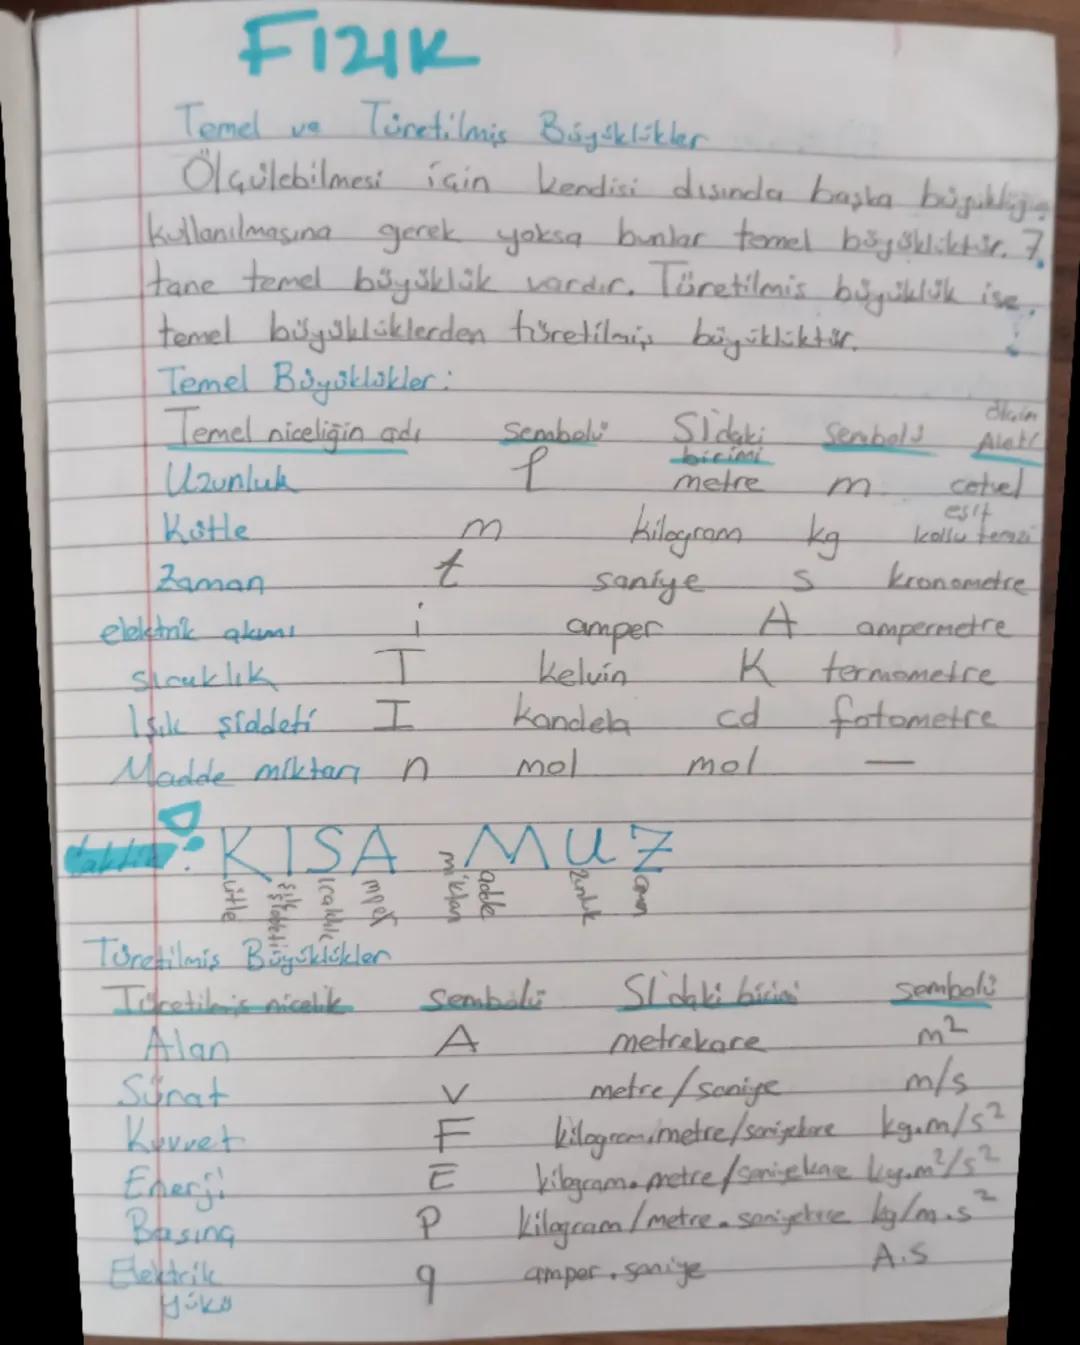 FIZIK
Temel ve Türetilmiş Büyüklükler
Ölçülebilmesi için kendisi dışında başka
kullanılmasına gerek yoksa bunlar temel büyüklüktür. 7
tane temel büyüklük vardır. Türetilmiş büyüklük ise
temel büyüklüklerden türetilmiş büyüklüktür.
Temel Büyüklükler:
Temel niceliğin adı Sembolü SI'daki birimi Sembolü Aleti
Uzunluk l metre m cetvel
Kütle m kilogram kg eşit kollu terazi
Zaman t saniye s kronometre
elektrik akımı i amper A ampermetre
sıcaklık T kelvin K termometre
Işık şiddeti I kandela cd fotometre
Madde miktarı n mol mol —
taktik: KISA MUZ
ütle şık şiddeti ıcaklık mper miktarı adde zunluk aman
Türetilmiş Büyüklükler
Türetilmiş nicelik Sembolü SI'daki birimi sembolü
Alan A metrekare m²
Sürat v metre/saniye m/s
Kuvvet F kilogram.metre/saniyekare kg.m/s²
Enerji E kilogram.metre/saniyekare kg.m²/s²
Basınç P kilogram/metre.saniyekare kg/m.s²
Elektrik yükü q amper.saniye A.S